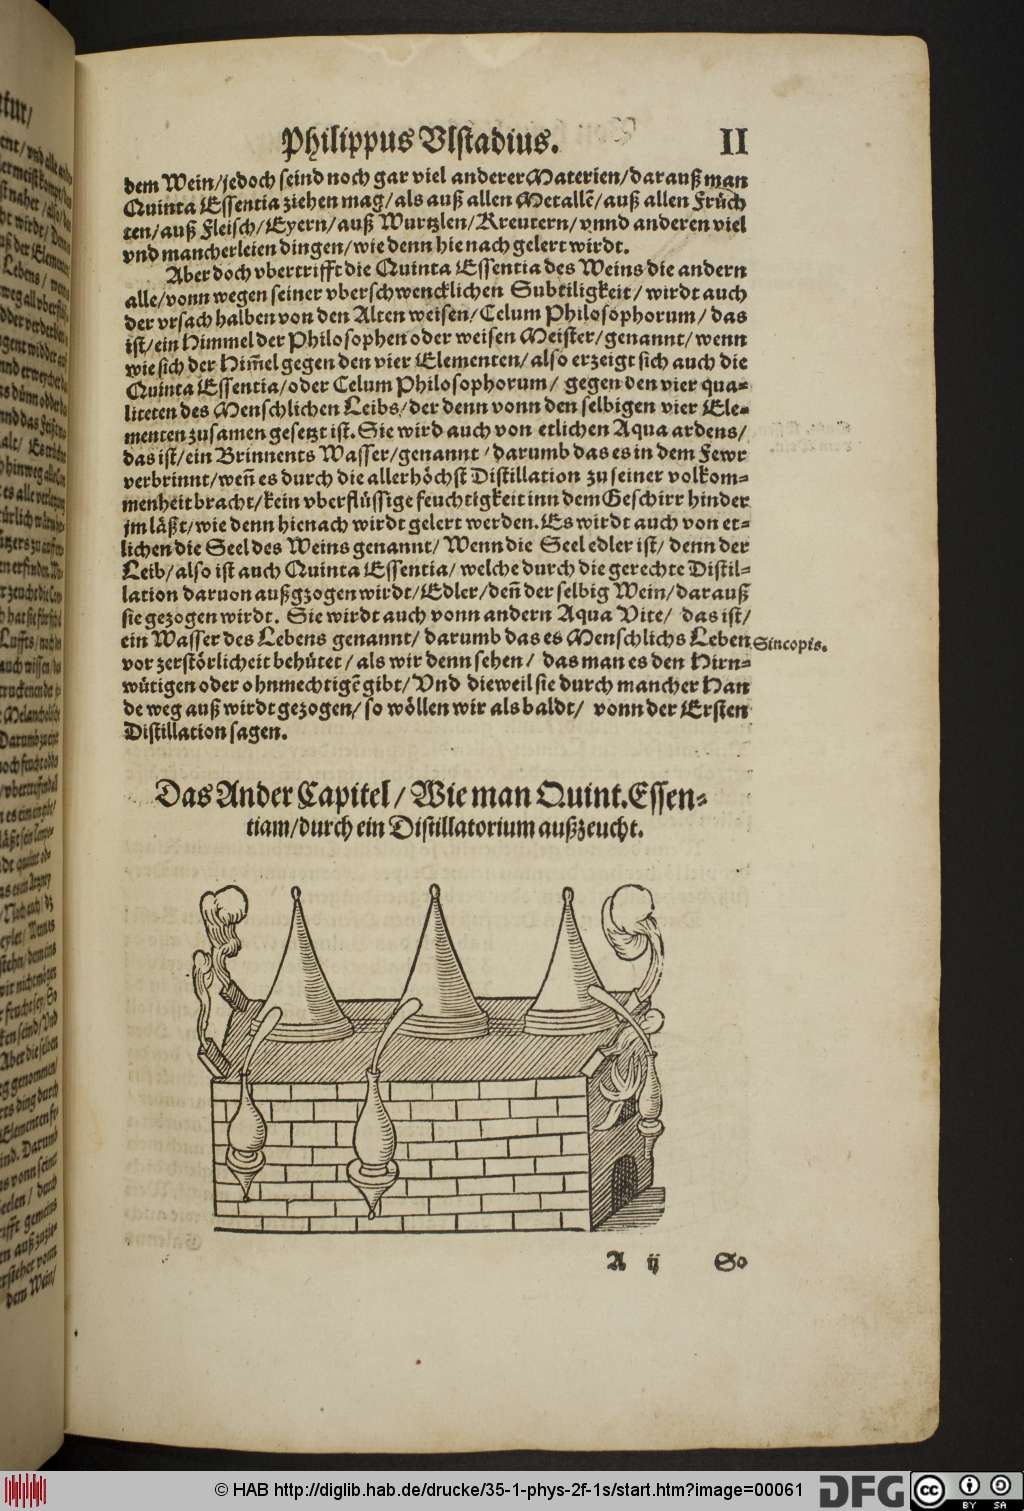 Philippus Vlstadius. II
dem Wein/jedoch seind noch gar viel anderer Materien/darauß man
Quinta Essentia ziehen mag/als auß allen Metallē/auß allen Früch
ten/auß Fleisch/Eyern/auß Wurtzlen/Kreutern/vnnd anderen viel
vnd mancherleien dingen/wie denn hie nach gelert wirdt.
Aber doch vbertrifft die Quinta Essentia des Weins die andern
alle/vonn wegen seiner vberschwencklichen Subtiligkeit/wirdt auch
der vrsach halben von den Alten weisen/Celum Philosophorum/ das
ist/ein Himmel der Philosophen oder weisen Meister/genannt/wenn
wie sich der Him̄el gegen den vier Elementen/also erzeigt sich auch die
Quinta Essentia/oder Celum Philosophorum/ gegen den vier qua-
liteten des Menschlichen Leibs/der denn vonn den selbigen vier Ele-
menten zusamen gesetzt ist. Sie wird auch von etlichen Aqua ardens/
das ist/ein Brinnents Wasser/genannt/darumb das es in dem Fewr
verbrinnt/weñ es durch die allerhöchst Distillation zu seiner volkom-
menheit bracht/kein vberflüssige feuchtigkeit inn dem Geschirr hinder
jm läßt/wie denn hienach wirdt gelert werden. Es wirdt auch von et-
lichen die Seel des Weins genannt/ Wenn die Seel edler ist/ denn der
Leib/also ist auch Quinta Essentia/ welche durch die gerechte Distil-
lation daruon außgzogen wirdt/Edler/deñ der selbig Wein/darauß
sie gezogen wirdt. Sie wirdt auch vonn andern Aqua Vite/ das ist/
ein Wasser des Lebens genannt/ darumb das es Menschlichs Leben
Sincopis.
vor zerstörlicheit behütet/ als wir denn sehen/ das man es den Hirn-
wütigen oder ohnmechtigē gibt/ Vnd dieweil sie durch mancher Han
de weg auß wirdt gezogen/ so wöllen wir als baldt/ vonn der Ersten
Distillation sagen.
Das Ander Capitel/ Wie man Quint. Essen-
tiam/durch ein Distillatorium außzeucht.
A ij So
© HAB http://diglib.hab.de/drucke/35-1-phys-2f-1s/start.htm?image=00061
DFG
cc BY SA